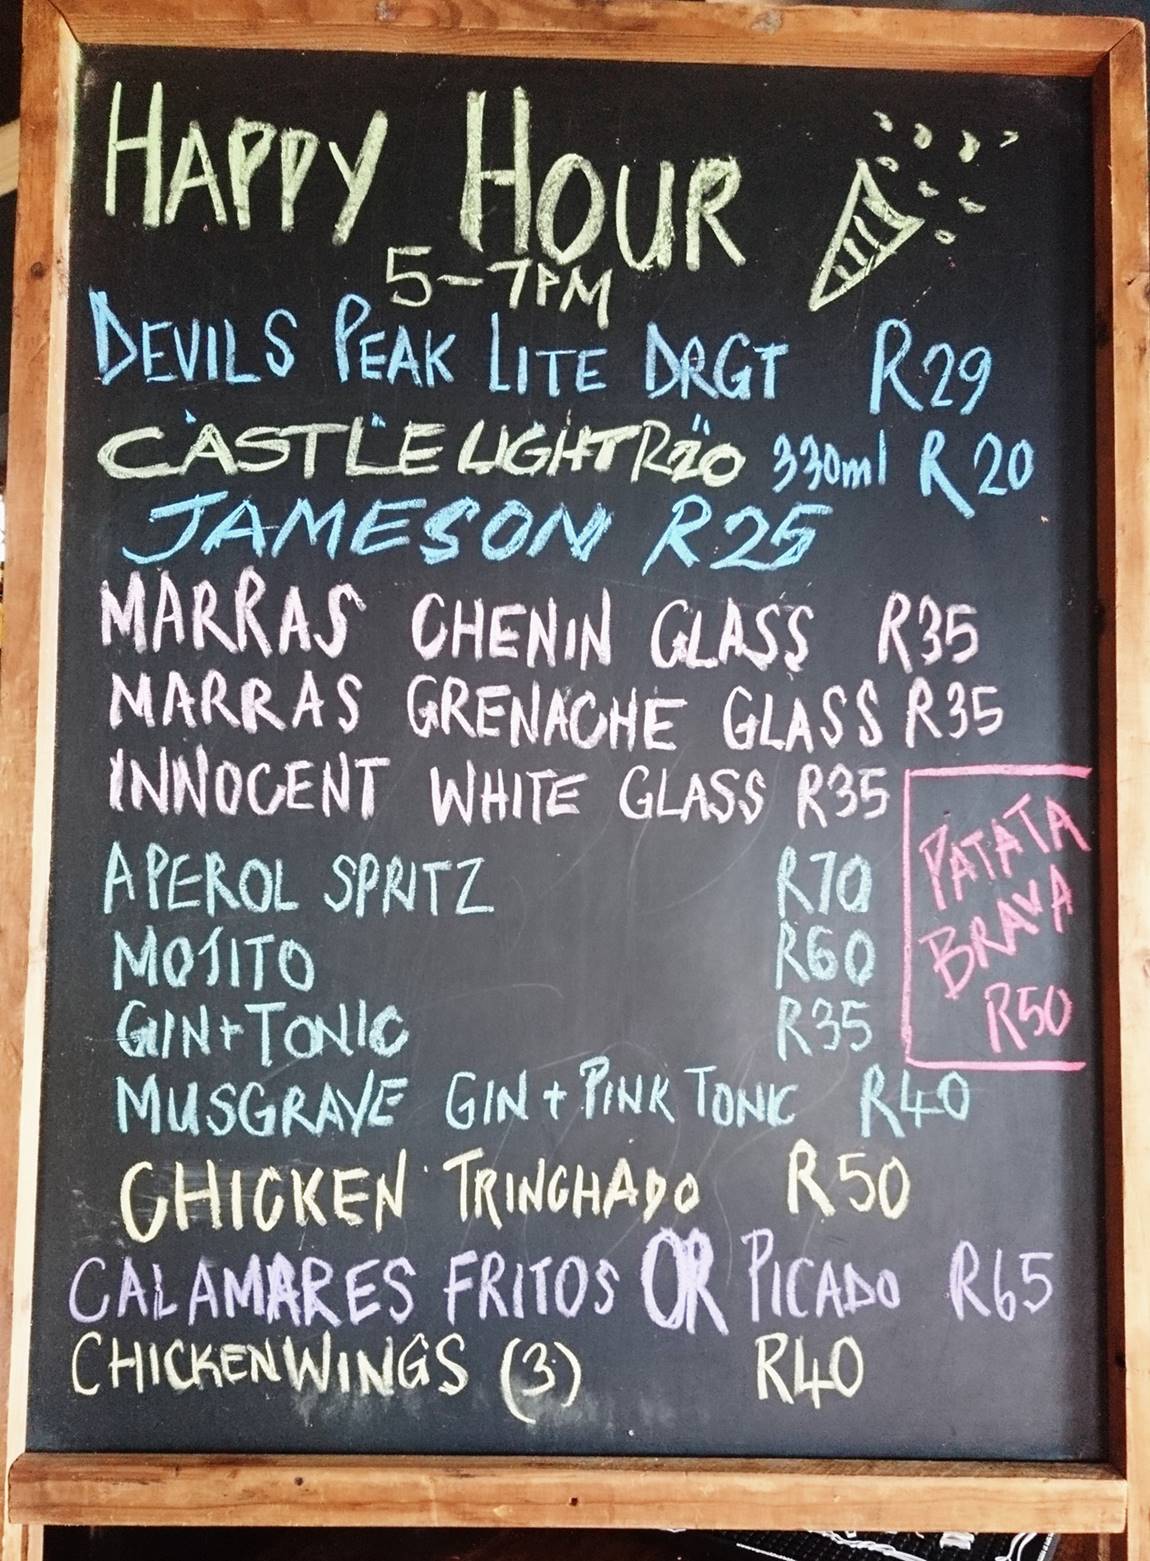 HAPPY HOUR
5-7PM
DEVILS PEAK LITE DRGT R29
CASTLE LIGHT R20 330ml R20
JAMESON R25
MARRAS CHENIN GLASS R35
MARRAS GRENACHE GLASS R35
INNOCENT WHITE GLASS R35
APEROL SPRITZ R70
MOJITO R60
GIN+TONIC R35
MUSGRAVE GIN + PINK TONIC R40
PATATA
BRAVA
R50
CHICKEN TRINCHADO R50
CALAMARES FRITOS OR PICADO R65
CHICKEN WINGS (3) R40